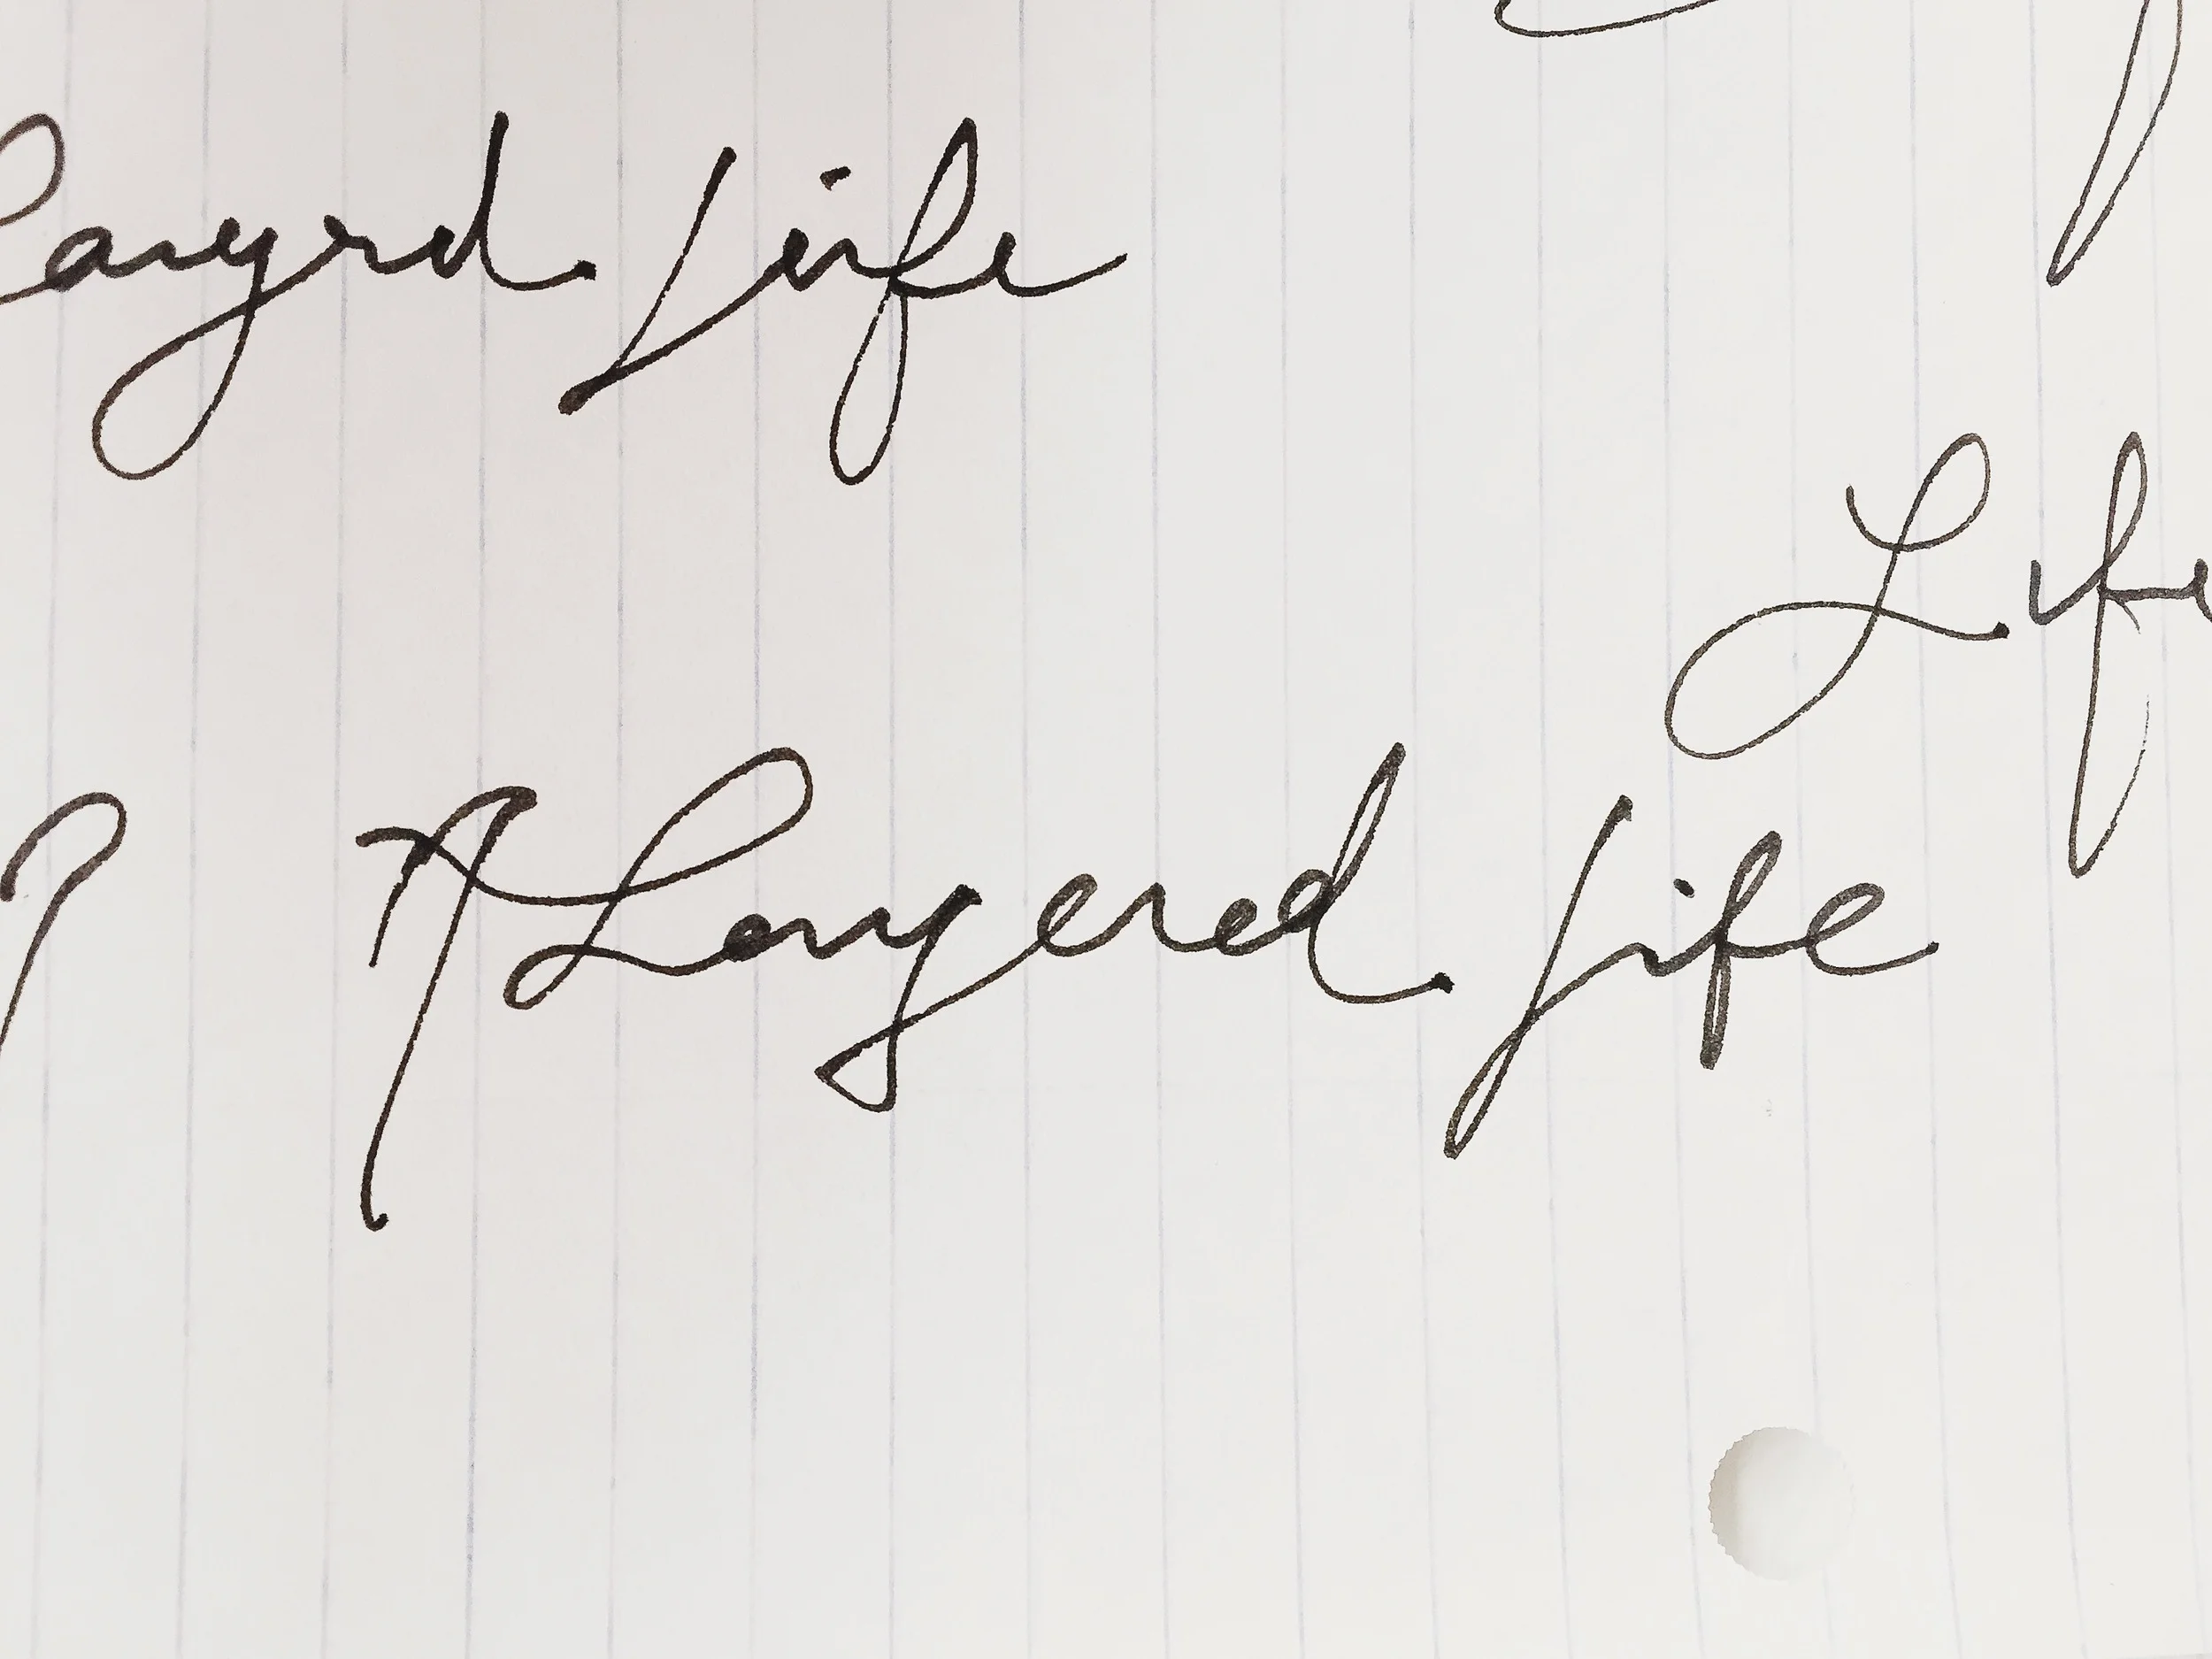 Layrd Life
Life
Layered Life